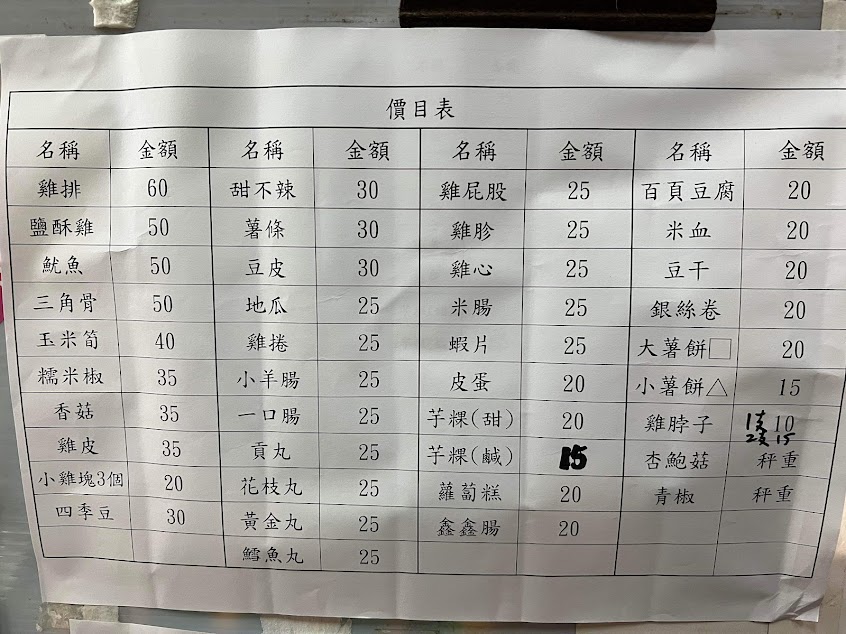 價目表
名稱 金額 名稱 金額 名稱 金額 名稱 金額
雞排 60 甜不辣 30 雞屁股 25 百頁豆腐 20
鹽酥雞 50 薯條 30 雞胗 25 米血 20
魷魚 50 豆皮 30 雞心 25 豆干 20
三角骨 50 地瓜 25 米腸 25 銀絲卷 20
玉米筍 40 雞捲 25 蝦片 25 大薯餅□ 20
糯米椒 35 小羊腸 25 皮蛋 20 小薯餅△ 15
香菇 35 一口腸 25 芋粿(甜) 20 雞脖子 1支10 2支15
雞皮 35 貢丸 25 芋粿(鹹) 15 杏鮑菇 秤重
小雞塊3個 20 花枝丸 25 蘿蔔糕 20 青椒 秤重
四季豆 30 黃金丸 25 鑫鑫腸 20
鱈魚丸 25